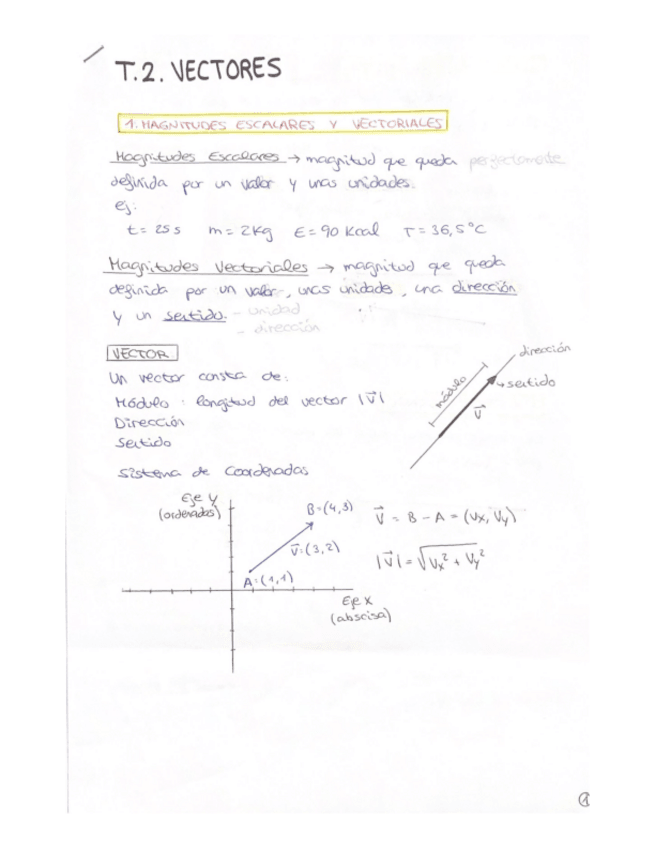 T.2. VECTORES
1. MAGNITUDES ESCALARES Y VECTORIALES
Magnitudes Escalares → magnitud que queda perfectamente
definida por un valor y unas unidades.
ej:
t = 25 s m = 2 Kg E = 90 Kcal T = 36,5 °C
Magnitudes Vectoriales → magnitud que queda
definida por un valor, unas unidades, una dirección
y un sentido. - unidad
- dirección
VECTOR
Un vector consta de:
Módulo : longitud del vector |v⃗|
Dirección
Sentido
dirección
sentido
módulo
v⃗
Sistema de Coordenadas
Eje Y
(ordenadas)
B=(4,3)
v⃗=(3,2)
A=(1,1)
Eje X
(abscisa)
v⃗ = B - A = (Vx, Vy)
|v⃗| = √Vx² + Vy²
1